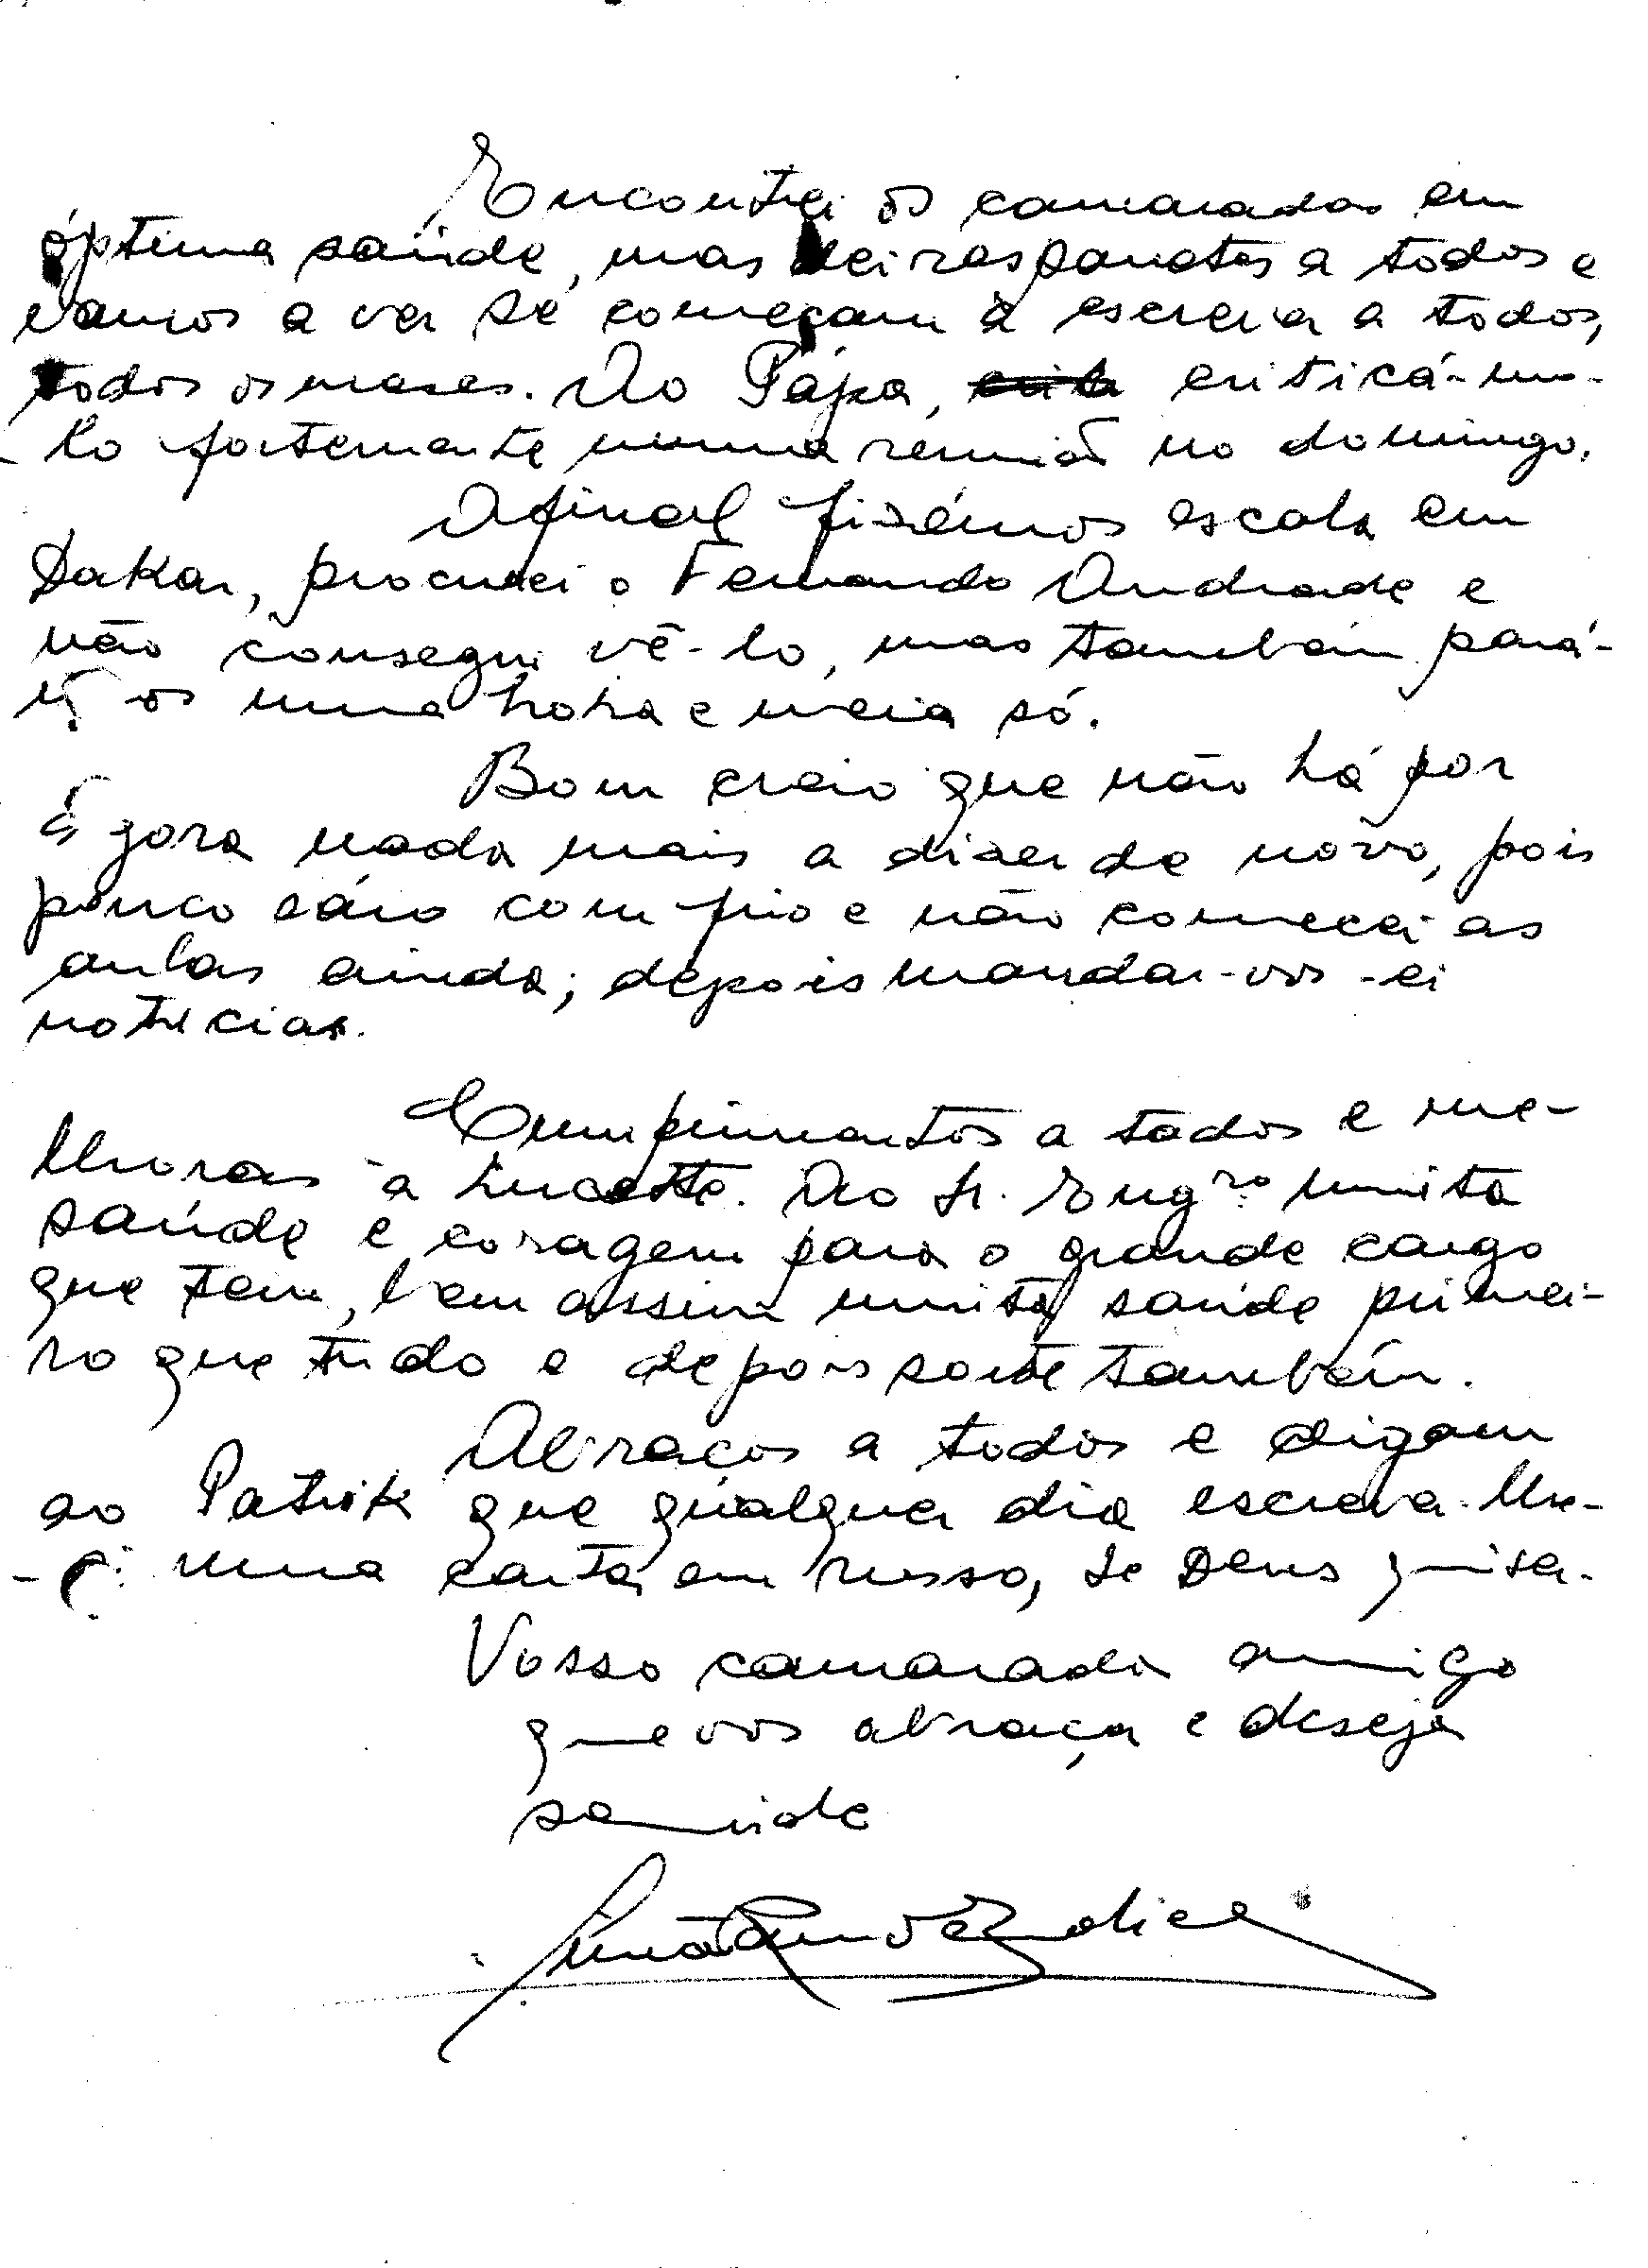 Encontrei os camaradas em
óptima saúde, mas dei raspanetes a todos e
vamos a ver se começam a escrever a todos,
todos os meses. Ao Pápa, criticá-mo-
-lo fortemente numa reunião no domingo.
Afinal fizémos escala em
Dakar, procurei o Fernando Andrade e
não consegui vê-lo, mas também pará-
mos uma hora e meia só.
Bom creio que não há por
agora nada mais a dizer de novo, pois
pouco sáio com frio e não comecei as
aulas ainda; depois mandar-vos-ei
noticias.
Cumprimentos a todos e me-
lhoras à Lucette. Ao Sr. Engro muita
saúde e coragem para o grande cargo
que tem, bem assim muita saúde primei-
ro que tudo e depois sorte também.
Abraços a todos e digam
ao Patrik que qualquer dia escrever-lhe-
-ei uma carta em russo, se Deus quiser.
Vosso camarada amigo
que vos abraça e deseja
saúde